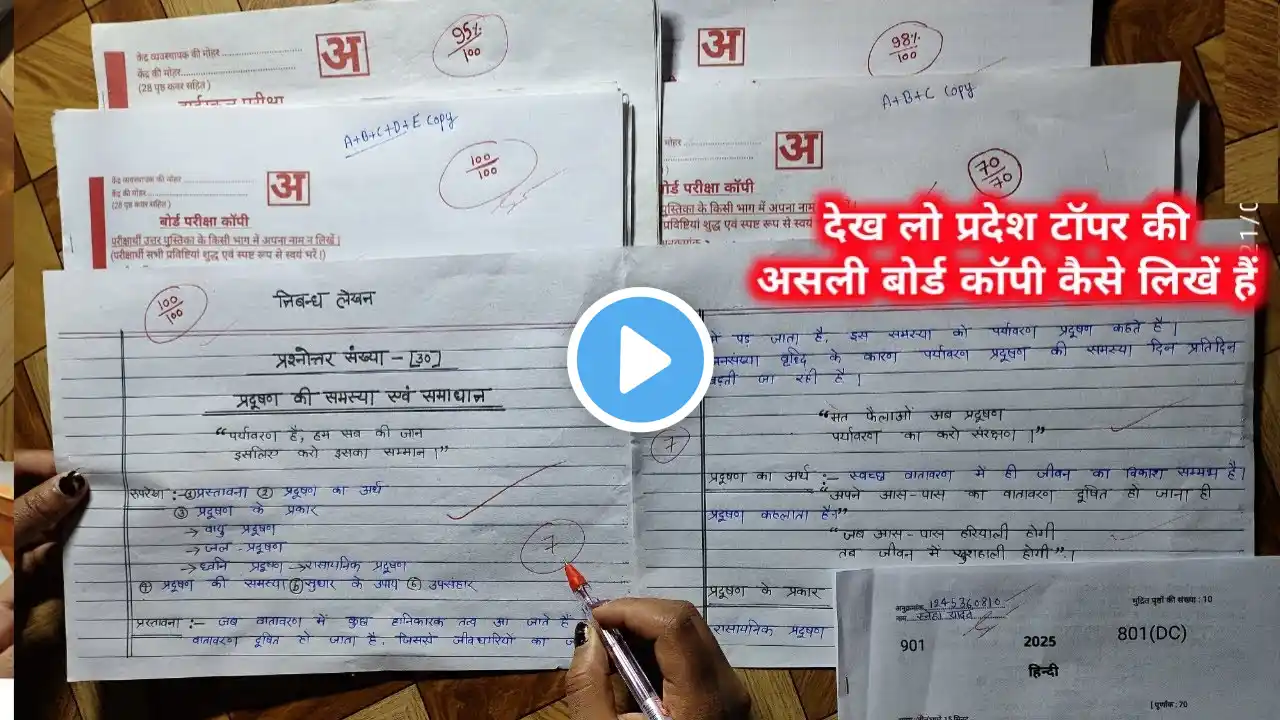 केंद्र व्यवस्थापक की मोहर
केंद्र की मोहर
(28 पृष्ठ कवर सहित)
अ
95%
100
अ
98%
100
A+B+C+D+E Copy
केंद्र व्यवस्थापक की मोहर
केंद्र की मोहर
(28 पृष्ठ कवर सहित)
अ
100
100
बोर्ड परीक्षा कॉपी
परीक्षार्थी उत्तर पुस्तिका के किसी भाग में अपना नाम न लिखें।
(परीक्षार्थी सभी प्रविष्टियां शुद्ध एवं स्पष्ट रूप से स्वयं भरें।)
A+B+C Copy
मोहर
अ
70
70
बोर्ड परीक्षा कॉपी
पुस्तिका के किसी भाग में अपना नाम
प्रविष्टियां शुद्ध एवं स्पष्ट रूप से स्वयं
देख लो प्रदेश टॉपर की
असली बोर्ड कॉपी कैसे लिखें हैं
100
100
निबन्ध लेखन
प्रश्नोत्तर संख्या - [30]
प्रदूषण की समस्या एवं समाधान
"पर्यावरण है, हम सब की जान
इसलिए करो इसका सम्मान।"
रूपरेखा :- ① प्रस्तावना ② प्रदूषण का अर्थ
③ प्रदूषण के प्रकार
→ वायु प्रदूषण
→ जल - प्रदूषण
→ ध्वनि प्रदूषण → रासायनिक प्रदूषण
④ प्रदूषण की समस्या ⑤ सुधार के उपाय ⑥ उपसंहार
7
प्रस्तावना :- जब वातावरण में कुछ हानिकारक तत्व आ जाते हैं
वातावरण दूषित हो जाता है, जिससे जीवधारियों का
पड़ जाता है, इस समस्या को पर्यावरण प्रदूषण कहते है।
जनसंख्या वृध्दि के कारण पर्यावरण प्रदूषण की समस्या दिन प्रतिदिन
बढ़ती जा रही है।
"मत फैलाओं अब प्रदूषण
पर्यावरण का करो संरक्षण।"
7
प्रदूषण का अर्थ :- स्वच्छ वातावरण में ही जीवन का विकास सम्भव है।
"अपने आस-पास का वातावरण दूषित हो जाना ही
प्रदूषण कहलाता है।"
"जब आस-पास हरियाली होगी
तब जीवन में खुशहाली होगी"।
प्रदूषण के प्रकार
रासायनिक प्रदूषण
अनुक्रमांक 1245360810
नाम
मुद्रित पृष्ठों की संख्या : 10
901
2025
801(DC)
हिन्दी
[ पूर्णांक : 70